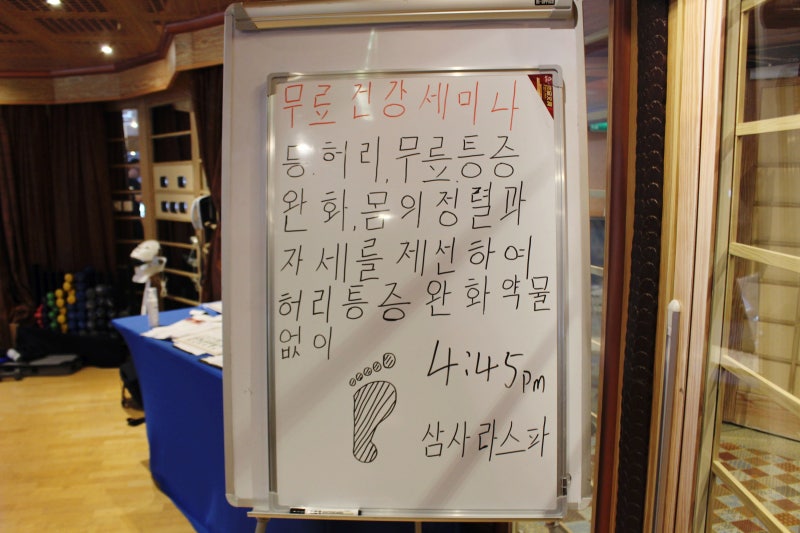 무료 건강 세미나
등.허리,무릎.통증
완화,몸의 정렬과
자세를 제선하여
허리통증 완화 약물
없이
4:45pm
삼사라스파